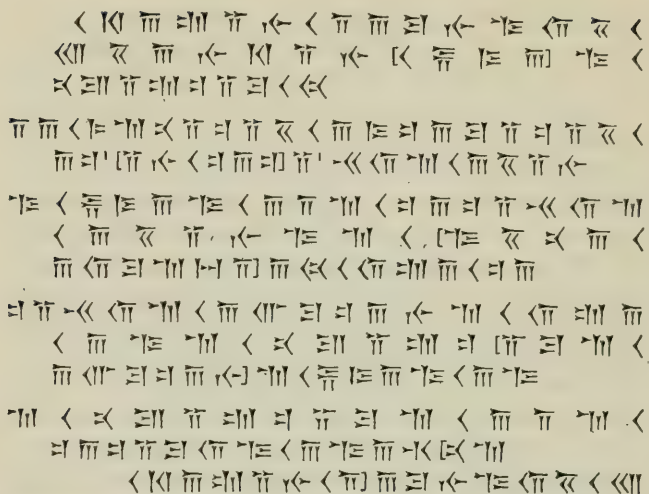 𐏐 𐎰 𐎠 𐎫 𐎡 𐎹 𐏐 𐎭 𐎠 𐎼 𐎹 𐎺 𐎢 𐏁 𐏐
𐎧 𐏁 𐎠 𐎹 𐎰 𐎡 𐎹 [𐏐 𐎱 𐎿 𐎠] 𐎺 𐏐
𐎴 𐎮 𐎡 𐎫 𐎲 𐎡 𐎼 𐏐 𐏃
𐎭 𐎠 𐏐 𐎣 𐎶 𐎴 𐎡 𐎲 𐎡 𐏁 𐏐 𐎠 𐎿 𐎲 𐎠 𐎼 𐎡 𐎲 𐎡 𐏁 𐏐
𐎠 𐎲 [𐎡 𐎹 𐏐 𐎲 𐎠 𐎲] 𐎡 𐎽 𐎢 𐎶 𐏐 𐎠 𐏁 𐎡 𐎹
𐎺 𐏐 𐎱 𐎿 𐎠 𐎺 𐏐 𐎠 𐎭 𐎶 𐏐 𐎲 𐎠 𐎲 𐎡 𐎽 𐎢 𐎶
𐏐 𐎠 𐏁 𐎡 𐎹 𐎺 𐎶 𐏐 [𐎺 𐏁 𐎴 𐎠 𐏐
𐎠 𐎢 𐎼 𐎶 𐏀 𐎭] 𐎠 𐏃 𐏐 𐎢 𐎫 𐎠 𐏐 𐎲 𐎠
𐎲 𐎡 𐎽 𐎢 𐎶 𐏐 𐎠 𐎥 𐎼 𐎲 𐎠 𐎹 𐎶 𐏐 𐎢 𐎫 𐎠
𐏐 𐎠 𐎺 𐎶 𐏐 𐎴 𐎮 𐎡 𐎫 𐎲 [𐎡 𐎼 𐎶 𐏐
𐎠 𐎥 𐎼 𐎲 𐎠 𐎹] 𐎶 𐏐 𐎱 𐎿 𐎠 𐎺 𐏐 𐎠 𐎺
𐎶 𐏐 𐎴 𐎮 𐎡 𐎫 𐎲 𐎡 𐎼 𐎶 𐏐 𐎠 𐎭 𐎶 𐏐
𐎲 𐎠 𐎲 𐎡 𐎼 𐎢 𐎺 𐏐 𐎠 𐎺 𐎠 𐎩 [𐎴 𐎶
𐏐 𐎰 𐎠 𐎫 𐎡 𐎹 𐏐 𐎭] 𐎠 𐎼 𐎹 𐎺 𐎢 𐏁 𐏐 𐎧